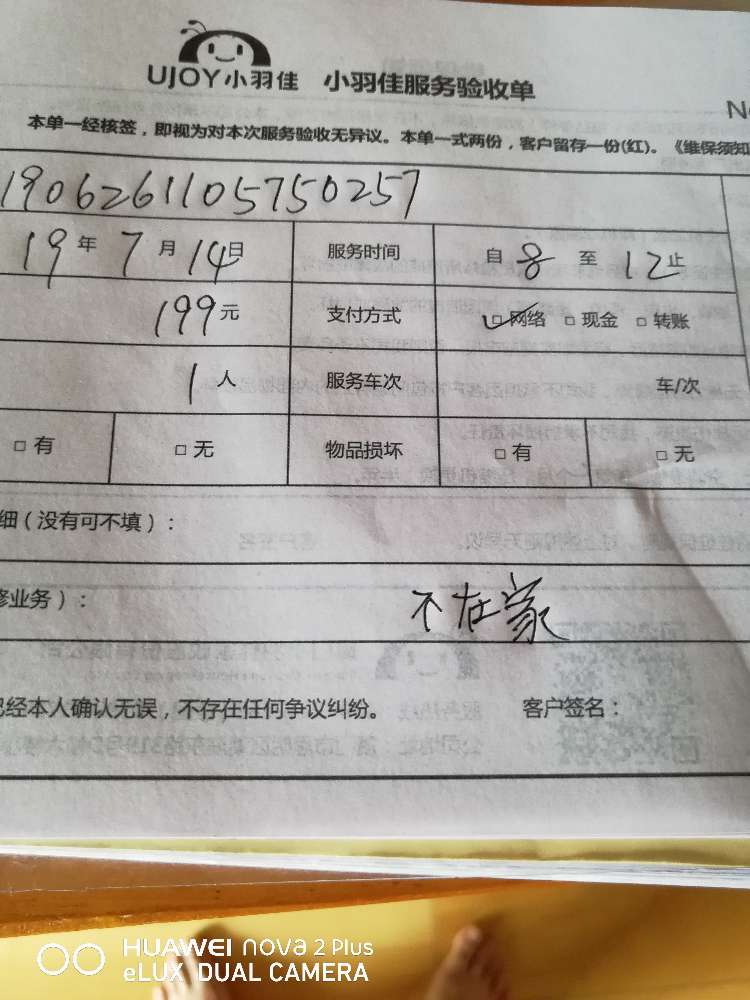 UJOY小羽佳 小羽佳服务验收单
本单一经核签，即视为对本次服务验收无异议。本单一式两份，客户留存一份(红)。《维保须知
1906261105750257
19年7月14日 服务时间 自8至12止
199元 支付方式 □网络 □现金 □转账
1人 服务车次 车/次
□有 □无 物品损坏 □有 □无
细（没有可不填）：
修业务）：
不在家
已经本人确认无误，不存在任何争议纠纷。 客户签名：
HUAWEI nova 2 Plus
eLUX DUAL CAMERA